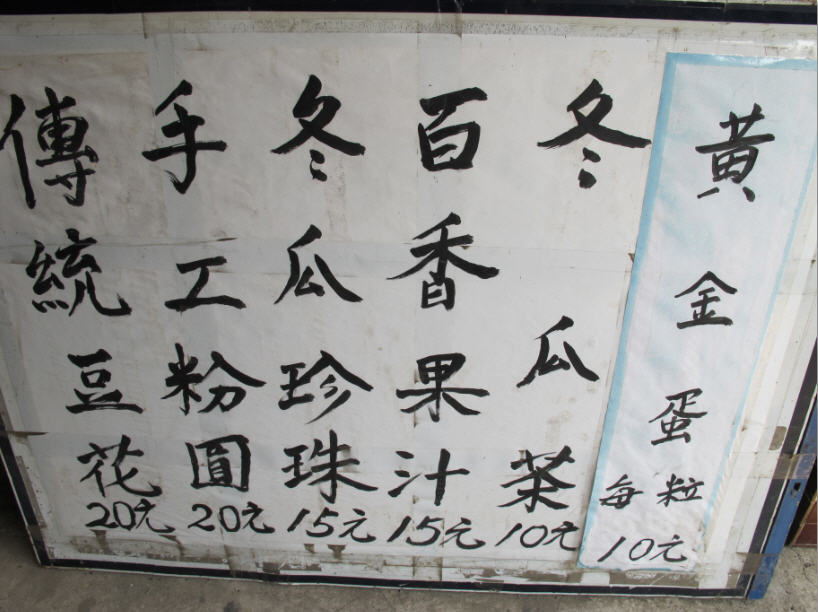 黃金蛋
每粒
10元
冬瓜茶
10元
百香果汁
15元
冬瓜珍珠
15元
手工粉圓
20元
傳統豆花
20元